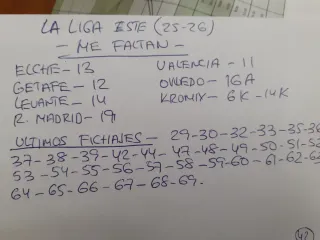 LA LIGA ESTE (25-26)
- ME FALTAN -
ELCHE - 13
GETAFE - 12
LEVANTE - 14
R. MADRID - 19
VALENCIA - 11
OVIEDO - 16A
KROMIX - 6K - 14K
ULTIMOS FICHAJES - 29-30-32-33-35-36
37-38-39-42-44-47-48-49-50-51-52
53-54-55-56-57-58-59-60-61-62-63
64-65-66-67-68-69.
42